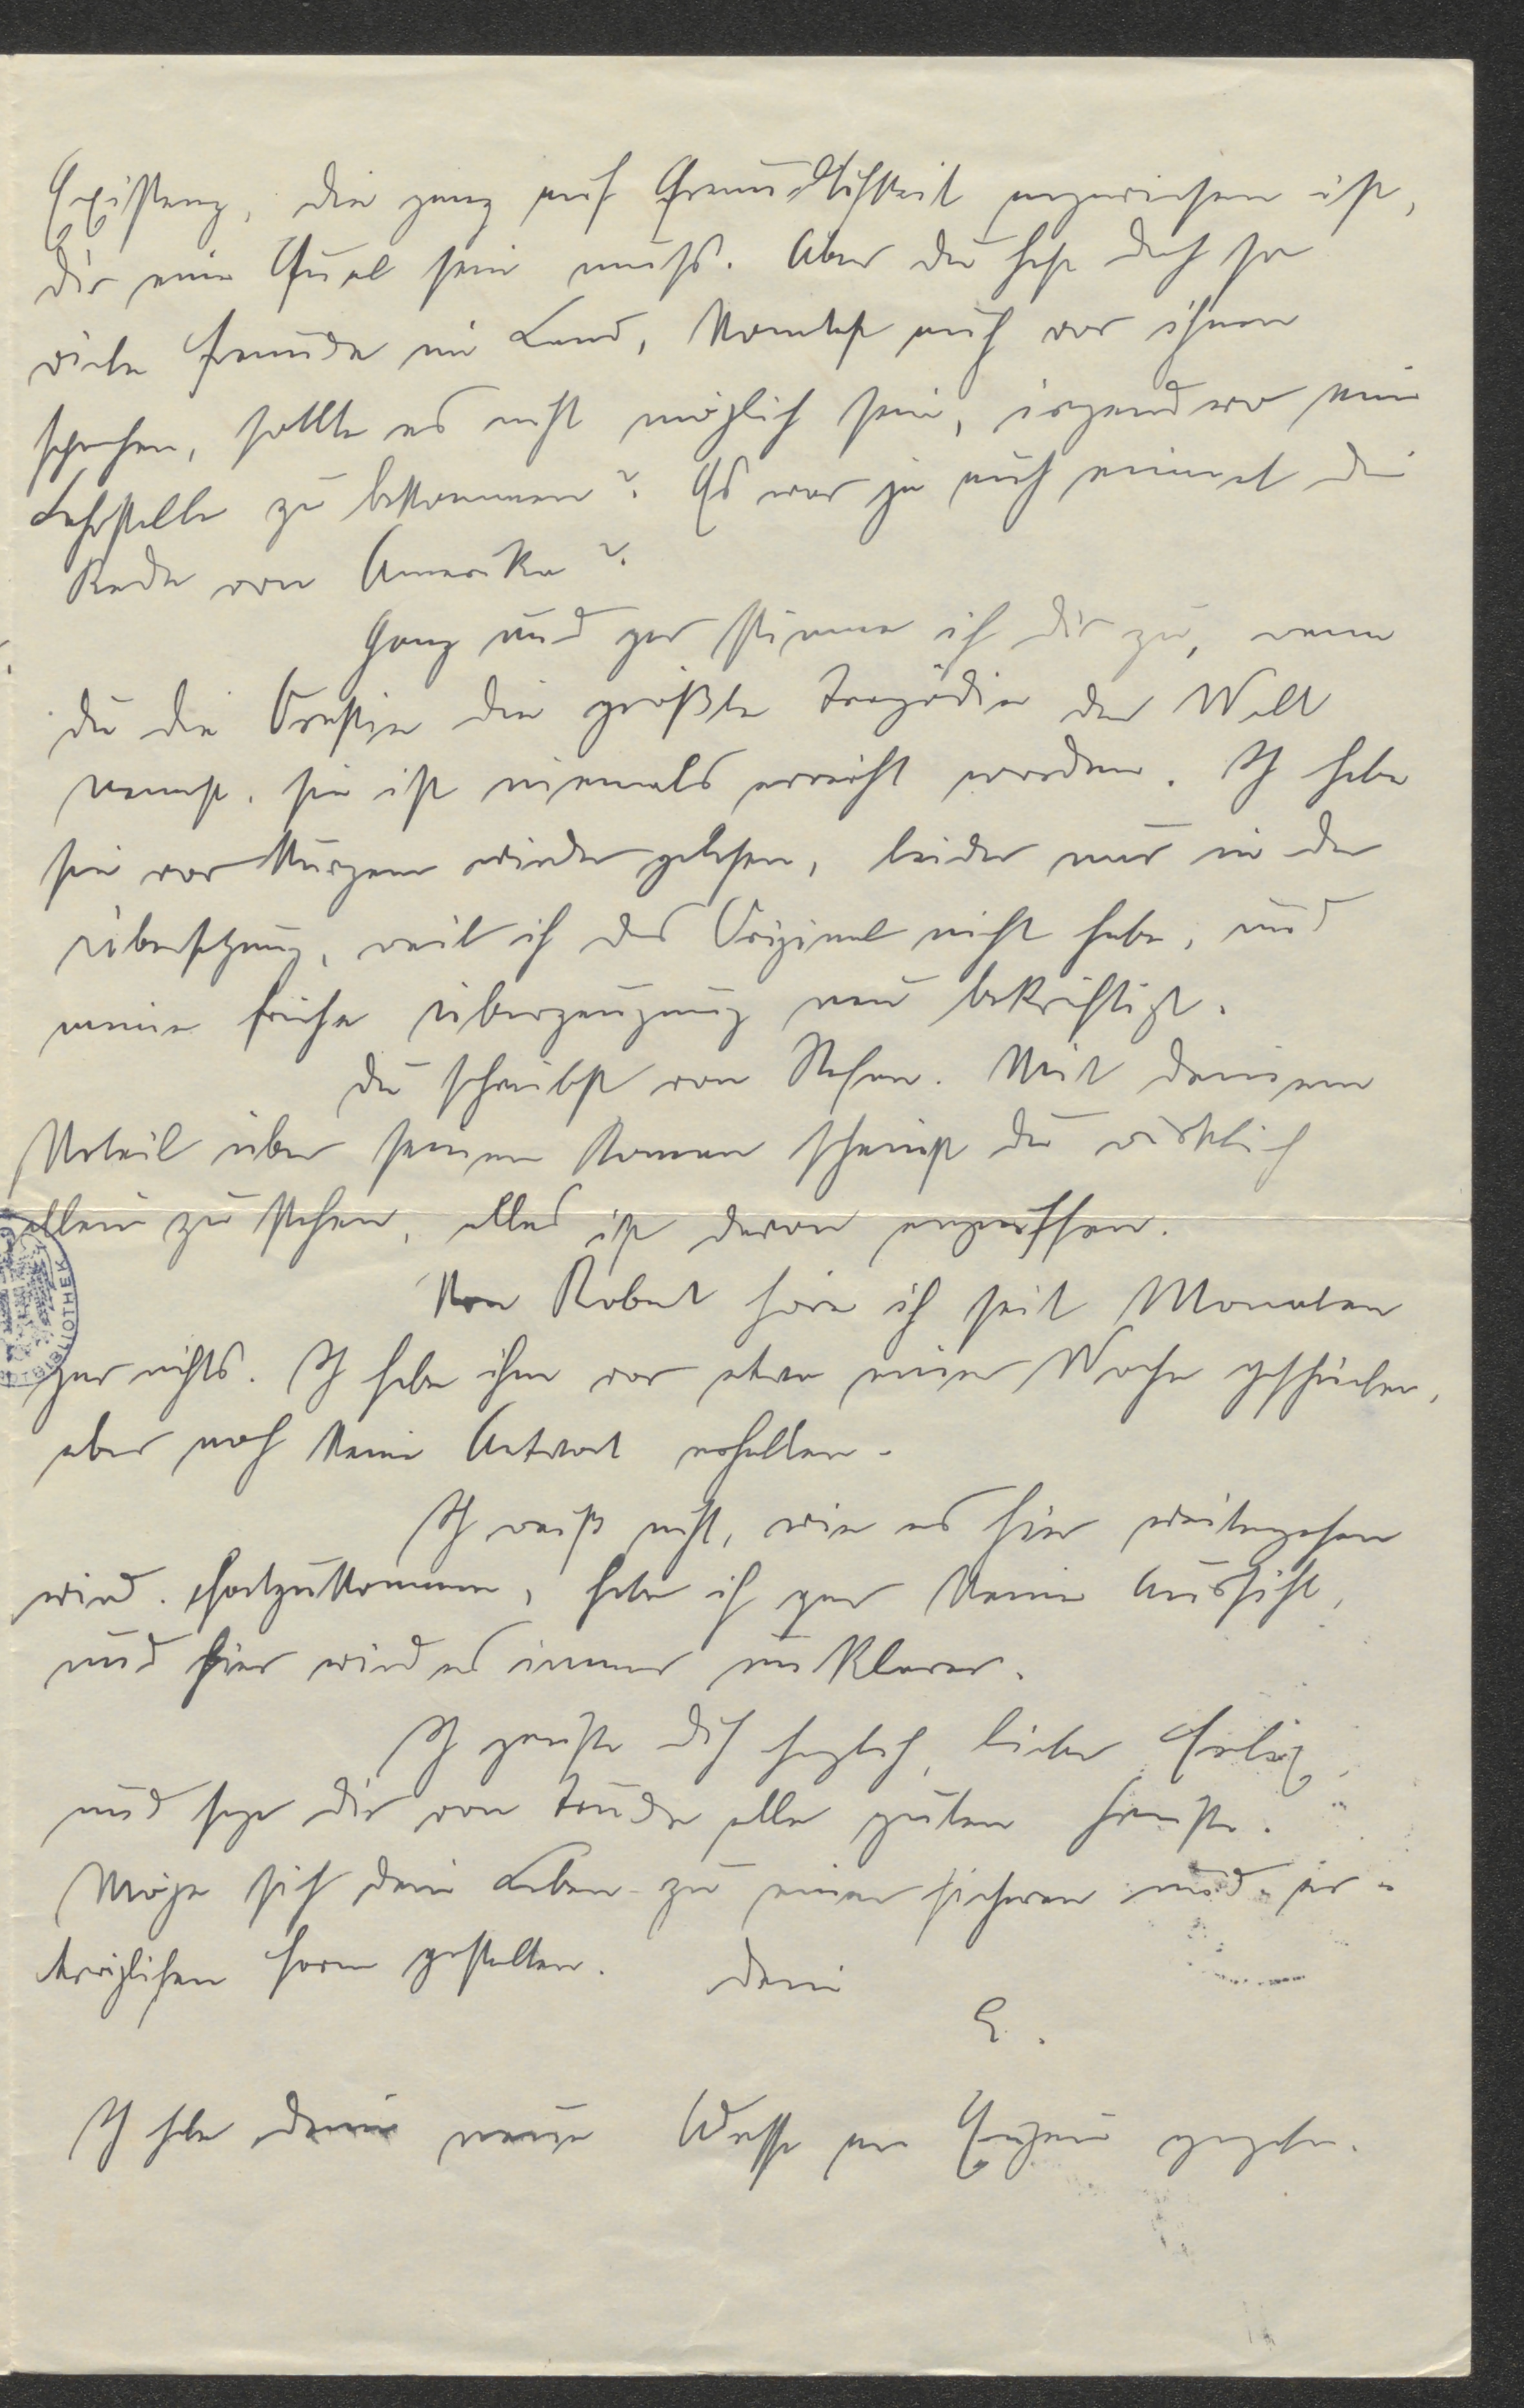 Existenz, die ganz auf Freundlichkeit angewiesen ist,
dir eine Qual sein muß. Aber du hast doch so
viele Freunde im Land, konntest auch vor ihnen
sprechen, sollte es nicht möglich sein, irgendwo eine
Lehrstelle zu bekommen? Es war ja auch einmal die
Rede von Amerika?
Ganz und gar stimme ich dir zu, wenn
du die Orestie die größte Tragödie der Welt
nennst, sie ist niemals erreicht worden. Ich habe
sie vor kurzem wieder gelesen, leider nur in der
Übersetzung, weil ich das Original nicht habe, und
meine frühe Überzeugung neu bekräftigt.
Du schreibst von Stefan. Mit deinem
Urteil über seinen Roman scheinst du wirklich
allein zu stehen, alles ist davon ergriffen.
Von Robert höre ich seit Monaten
gar nichts. Ich habe ihm vor etwa einer Woche geschrieben,
aber noch keine Antwort erhalten.
Ich weiß nicht, wie es hier weitergehen
wird. Fortzukommen, habe ich gar keine Aussicht,
und hier wird es immer unklarer.
Ich grüße dich herzlich, lieber Felix,
und sage dir von Trude alle guten Grüße.
Möge sich dein Leben zu einer sicheren und er-
träglichen Form gestalten. Dein
E.
Ich habe deine neue Adresse an Eugen gegeben.